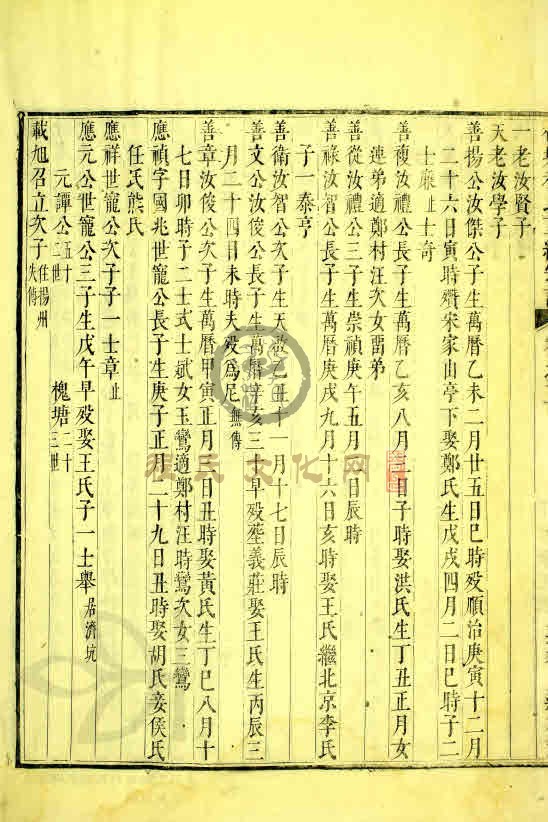 一老汝賢子
天老汝學子
善揚公汝傑公子生萬曆乙未二月廿五日巳時殁順治庚寅十二月
二十六日寅時殯宋家山亭下娶鄭氏生戊戌四月二日巳時子二
士廉止士奇
善複汝禮公長子生萬曆乙亥八月二日子時娶洪氏生丁丑正月女
連弟適鄭村汪次女畱弟
善從汝禮公三子生崇禎庚午五月日辰時
善祿汝智公長子生萬曆庚戌九月十六日亥時娶王氏繼北京李氏
子一泰亨
善衛汝智公次子生天啟乙丑十一月十七日辰時
善文公汝俊公長子生萬曆辛亥三十早殁塟義莊娶王氏生丙辰三
月二十四日未時夫殁爲尼無傳
善章汝俊公次子生萬曆甲寅正月日丑時娶黃氏生丁巳八月十
七日卯時子二士式士斌女玉鸞適鄭村汪時鸞次女三鸞
應禎字國兆世寵公長子生庚子正月二十九日丑時娶胡氏妾侯氏
任氏熊氏
應祥世寵公次子子一士章止
應元公世寵公三子生戊午早殁娶王氏子一士舉居濟坑
元譚公五十二世 槐塘二十三世
載旭召立次子住揚州失傳
程氏文化网